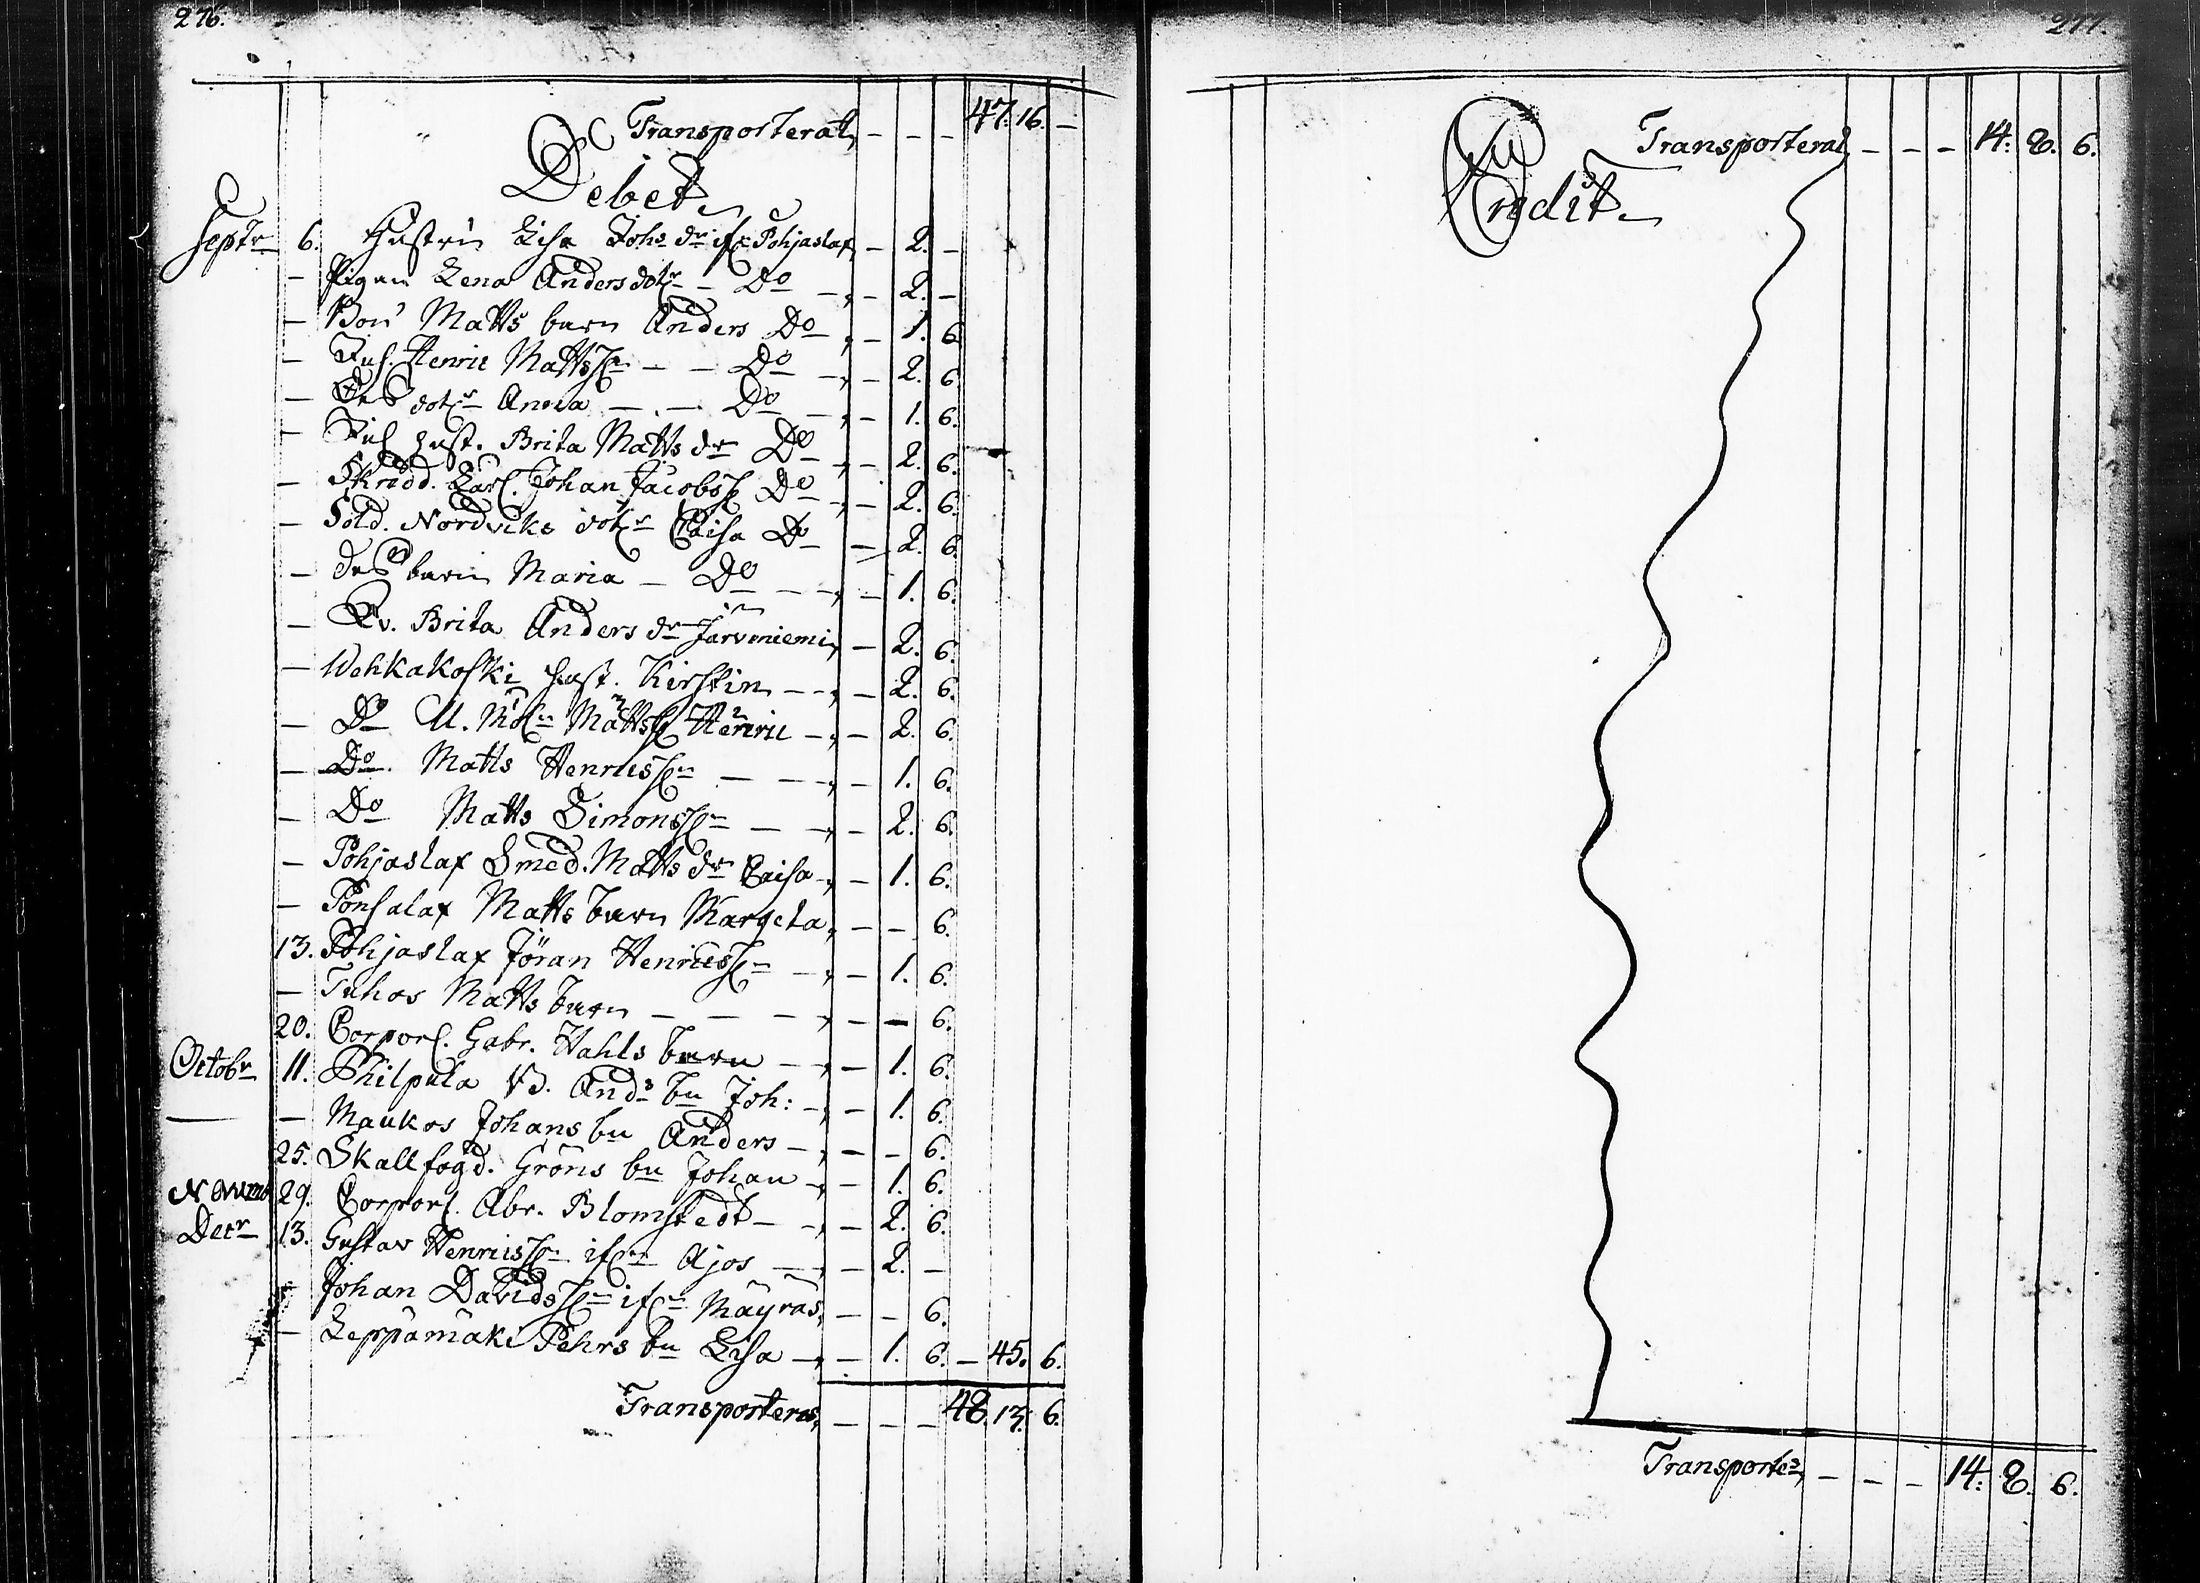 276.
Transporterat, - - - 47. 16. -
Debet
Septr 6. Hustrun Lisa Johs dr ifr Pohjaslax - 2. -
- Pigan Lena Anders dotr - Do - 2. -
- Bon Matts barn Anders Do - 1. 6.
- Inh. Henric Mattss. - - Do - 2. 6.
- Des dotr Anna - - Do - 1. 6.
- Inh hust. Brita Matts dr Do - 2. 6.
- Skrädd. Karl. Johan Jacobss. Do - 2. 6.
- Sold. Nordviks dotr Caisa Do - 2. 6.
- des barn Maria - Do - - 1. 6.
- Brita Anders dr Järviniemi, - 2. 6.
- Wehkakoski hust. Kirstin - - 2. 6.
- Do Mattss Henric - - 2. 6.
- Do Matts Henricss. - - - 1. 6.
- Do Matts Simonss. - - 2. 6.
- Pohjaslax Smed. Matts dr Caisa - 1. 6.
- Pönsalax Matts barn Margeta, - - 6.
13. Pohjaslax Jöran Henricss. - 1. 6.
- Juhos Matts barn - - - - - 6.
20. Corporl. Gabr. Hahls barn - - 1. 6.
Octobr 11. Philpula Nd. Ands bn Joh: - - 1. 6.
- Maukos Johans bn Anders - - - 6.
25. Skallfogd. Gröns bn Johan - - 1. 6.
Novemb 29. Corporl. Abr. Blomstedt - - 2. 6.
Decr 13. Gustav Henricss. ifrn Ajos - - 2. -
- Johan Davidss. ifrn Mäyräs, - - 6.
- Leppämäki Pehrs bn Lisa - - 1. 6. - 45. 6.
Transporteras, - - - 48. 13. 6.
277.
Transporterat, - - - 14. 8. 6.
Credit
Transporters, - - - 14. 8. 6.